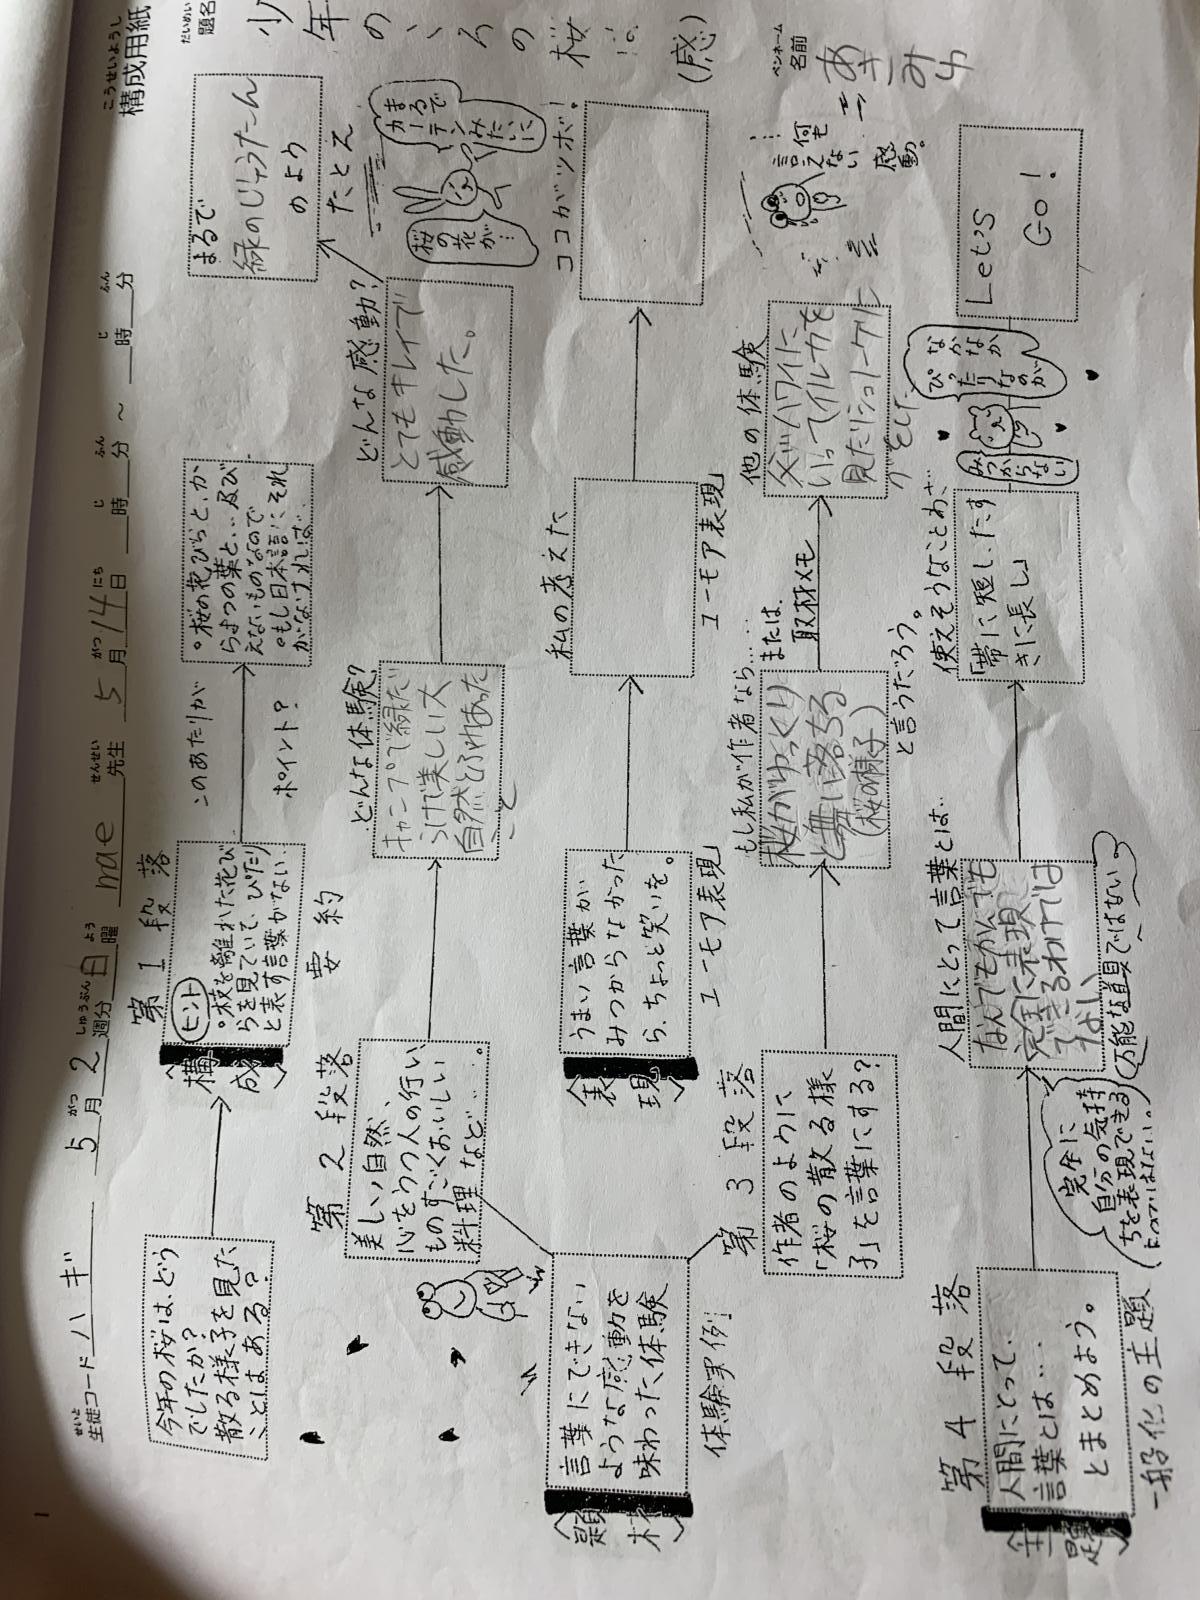 こうせいようし
構成用紙
だいめい
題名
少年のころの桜は
(感)
ペンネーム
名前
あきみゆ
せいと
生徒コード ハギ
5月2週分日曜
がつ しゅうぶん よう
mae 先生
せんせい
5月14日
がつ にち
時 分 ～ 時 分
じ ふん じ ふん
今年の桜は、どう
でしたか？
散る様子を見た
ことはある？
第1段落
〈構成〉
ヒント
・枝を離れた花び
らを見ていて、ぴったり
と表す言葉がない。
要約
このあたりが
ポイント？
・桜の花びらと、か
らまつの葉と、‥及び
えないものなので‥
・もし日本語にそれ
がなければ‥
まるで
緑のじゅうたん
のよう
たとえ
第2段落
美しい自然、
心をうつ人の行い
ものすごくおいしい
料理など‥‥。
どんな体験？
キャンプで緑だ
らけで美しい大
自然とふれあった
こと
どんな感動？
とてもキレイで
感動した。
まるで
カーテン
みたいに
桜の
花が…
〈題材〉
言葉にできない
ような感動を
味わった、体験
体験実例
〈表現〉
うまい言葉が
みつからなかった
ら、ちょっと笑いを。
ユーモア表現
私の考えた
ユーモア表現
ココがツボ！
第3段落
作者のように
「桜の散る様
子」を言葉にする？
もし私が作者なら‥‥
桜がゆっくり
と舞い落ちる
(桜の様子)
と言うだろう。
または、
取材メモ
他の体験
父がハワイに
いってイルカを
見たりシュノーケリン
グをした
…何も
言えない
感動。
第4段落
〈主題〉
人間にとって、
言葉とは‥‥
とまとめよう。
一般化の主題
人間にとって言葉とは‥
なんでもかんでも
完全に表現
できるわけでは
ない
完全に
自分の気持
ちを表現できる
(万能な道具ではない。)
使えそうなことわざ
「帯に短したす
きに長し」
なかなか
ぴったりなのが
みつからない
Let's
Go！